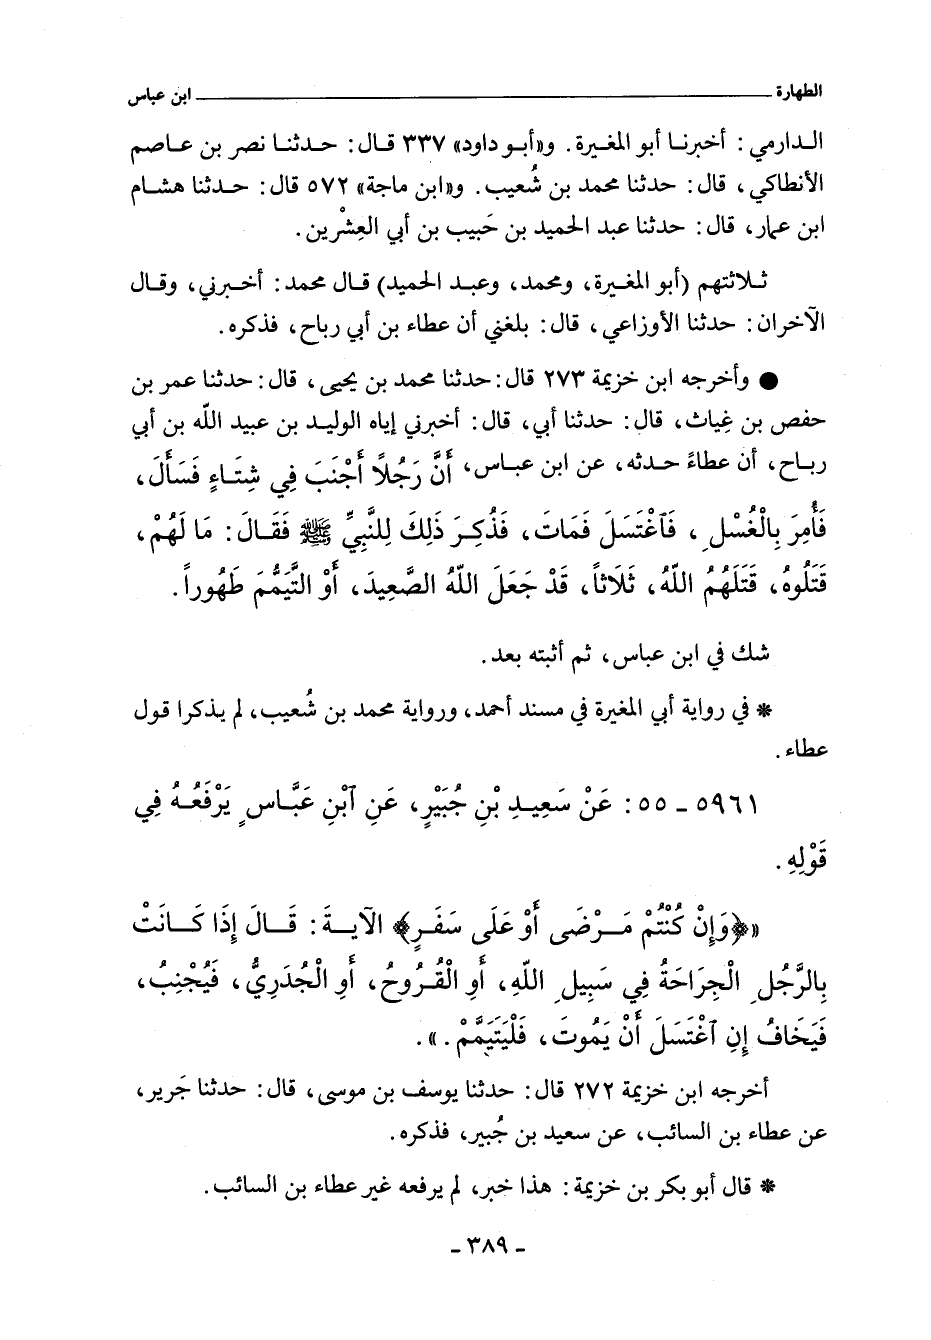 الطهارة ــــــــــــــــــــــــــــــــــــــــ ابن عباس
الدارمي: أخبرنا أبو المغيرة. و«أبو داود» ٣٣٧ قال: حدثنا نصر بن عاصم
الأنطاكي، قال: حدثنا محمد بن شُعيب. و«ابن ماجة» ٥٧٢ قال: حدثنا هشام
ابن عمار، قال: حدثنا عبد الحميد بن حَبيب بن أبي العِشْرين.
ثلاثتهم (أبو المغيرة، ومحمد، وعبد الحميد) قال محمد: أخبرني، وقال
الآخران: حدثنا الأوزاعي، قال: بلغني أن عطاء بن أبي رباح، فذكره.
● وأخرجه ابن خزيمة ٢٧٣ قال: حدثنا محمد بن يحيى، قال: حدثنا عمر بن
حفص بن غِياث، قال: حدثنا أبي، قال: أخبرني إياه الوليد بن عبيد الله بن أبي
رباح، أن عطاءً حدثه، عن ابن عباس، أَنَّ رَجُلاً أَجْنَبَ فِي شِتَاءٍ فَسَأَلَ،
فَأُمِرَ بِالْغُسْلِ، فَاغْتَسَلَ فَمَاتَ، فَذُكِرَ ذَلِكَ لِلنَّبِيِّ ﷺ فَقَالَ: مَا لَهُمْ،
قَتَلُوهُ، قَتَلَهُمُ اللّهُ، ثَلَاثاً، قَدْ جَعَلَ اللّهُ الصَّعِيدَ، أَوْ التَّيَمُّمَ طَهُوراً.
شك في ابن عباس، ثم أثبته بعد.
* في رواية أبي المغيرة في مسند أحمد، ورواية محمد بن شُعيب، لم يذكرا قول
عطاء.
٥٩٦١ - ٥٥: عَنْ سَعِيدِ بْنِ جُبَيْرٍ، عَنِ ٱبْنِ عَبَّاسٍ يَرْفَعُهُ فِي
قَوْلِهِ.
«﴿وَإِنْ كُنْتُمْ مَرْضَى أَوْ عَلَى سَفَرٍ﴾ الآيةَ: قَالَ إِذَا كَانَتْ
بِالرَّجُلِ الْجِرَاحَةُ فِي سَبِيلِ اللّهِ، أَوِ الْقُرُوحُ، أَوِ الْجُدَرِيُّ، فَيُجْنِبُ،
فَيَخَافُ إِنِ ٱغْتَسَلَ أَنْ يَمُوتَ، فَلْيَتَيَمَّمْ.».
أخرجه ابن خزيمة ٢٧٢ قال: حدثنا يوسف بن موسى، قال: حدثنا جَرير،
عن عطاء بن السائب، عن سعيد بن جُبير، فذكره.
* قال أبو بكر بن خزيمة: هذا خبر، لم يرفعه غير عطاء بن السائب.
- ٣٨٩ -